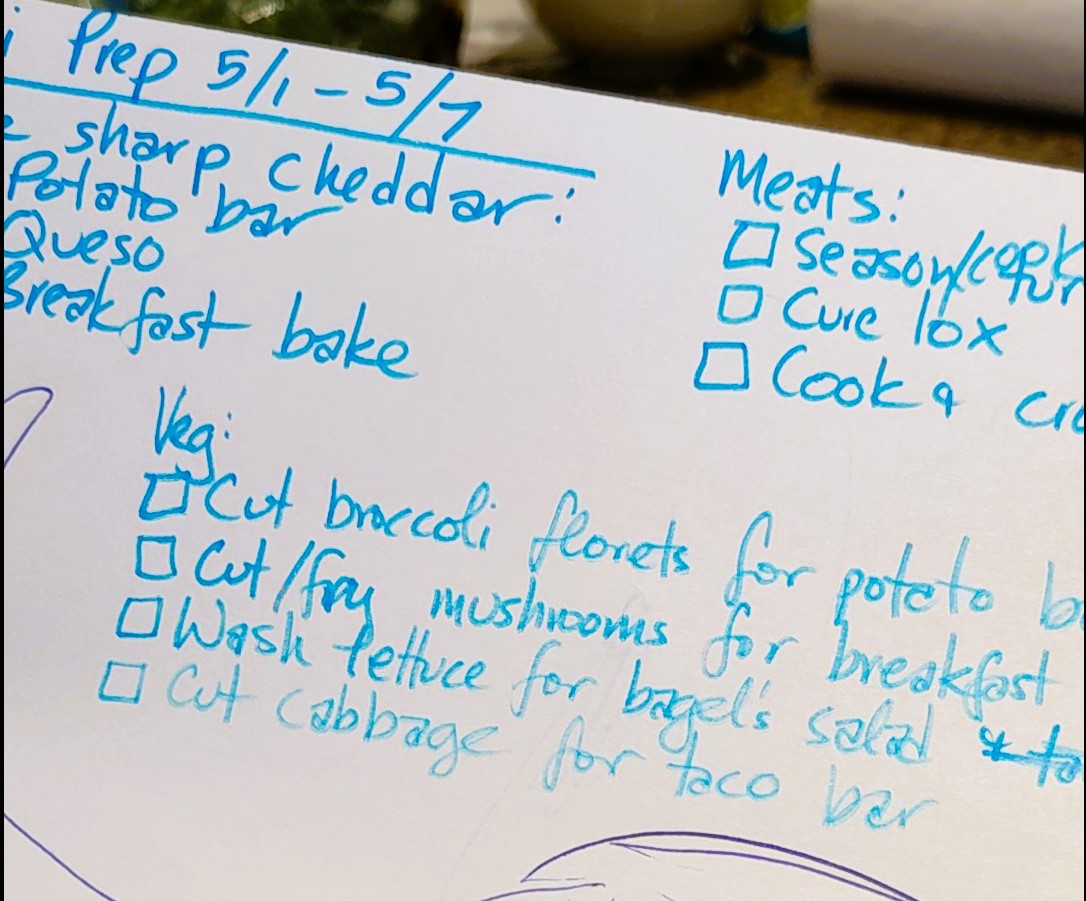 Prep 5/1 - 5/7
sharp cheddar:
Potato bar
Queso
Breakfast bake
Meats:
Season/cook
Cure lox
Cook &
Veg:
Cut broccoli florets for potato
Cut/fry mushrooms for breakfast
Wash lettuce for bagel's salad
Cut cabbage for taco bar